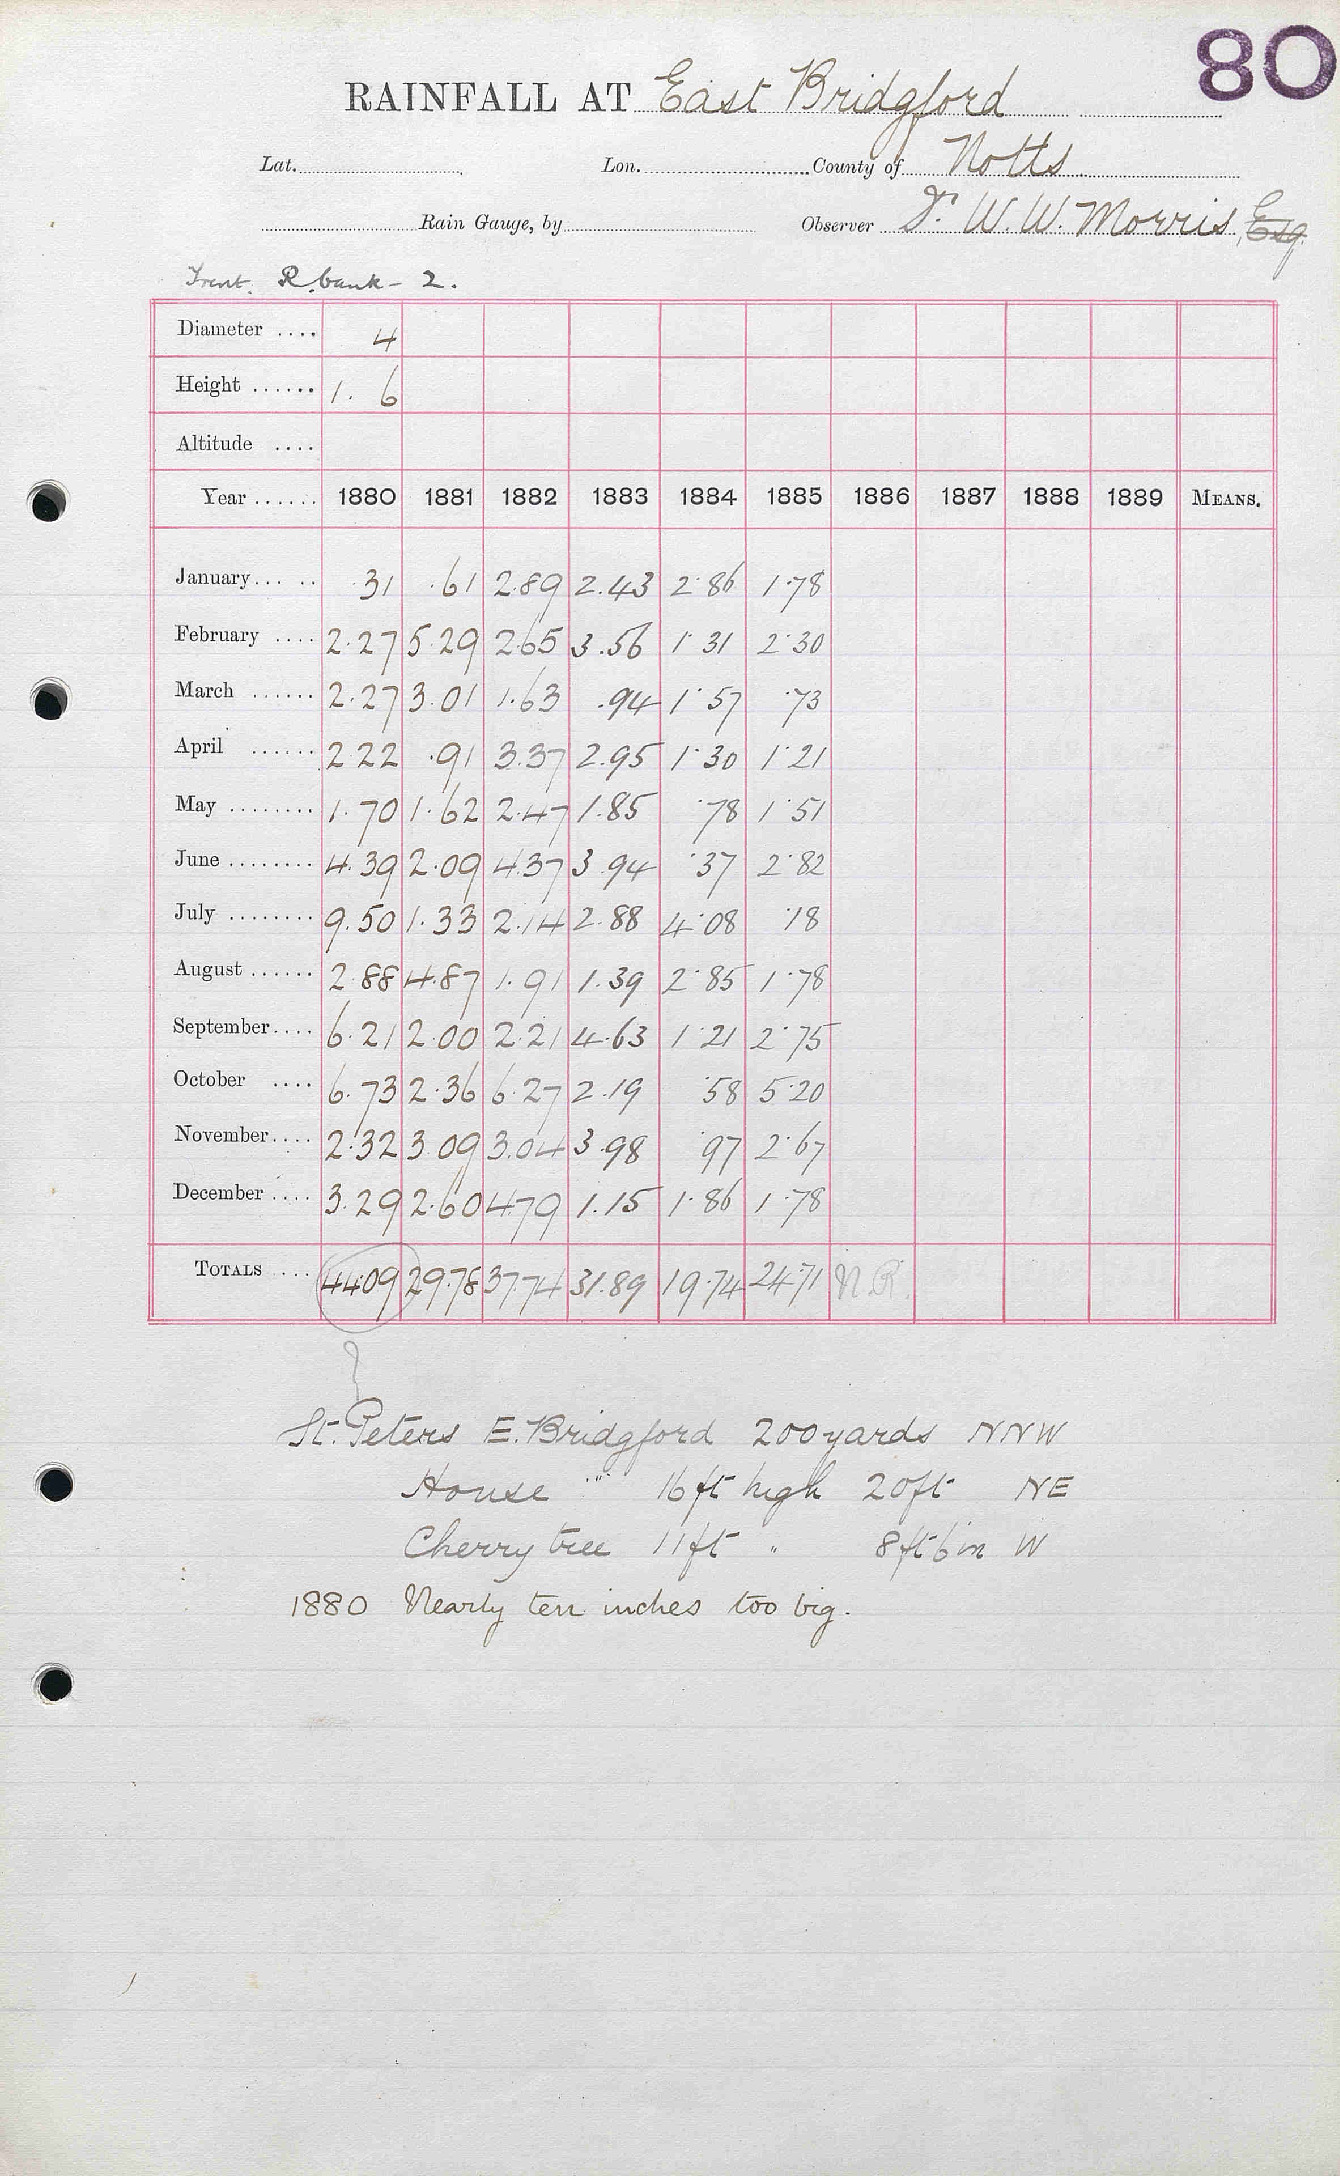 80
RAINFALL AT East Bridgford
Lat. Lon. County of Notts
Rain Gauge, by Observer Dr. W. W. Morris, Esq
Trent. R. bank - 2.
Diameter .... 4
Height ...... 1. 6
Altitude ....
Year ...... 1880 1881 1882 1883 1884 1885 1886 1887 1888 1889 MEANS.
January... .. .31 .61 2.89 2.43 2.86 1.78
February .... 2.27 5.29 2.65 3.56 1.31 2.30
March ...... 2.27 3.01 1.63 .94 1.57 .73
April ...... 2.22 .91 3.37 2.95 1.30 1.21
May ........ 1.70 1.62 2.47 1.85 .78 1.51
June ........ 4.39 2.09 4.37 3.94 .37 2.82
July ........ 9.50 1.33 2.14 2.88 4.08 .18
August ...... 2.88 4.87 1.91 1.39 2.85 1.78
September.... 6.21 2.00 2.21 4.63 1.21 2.75
October .... 6.73 2.36 6.27 2.19 .58 5.20
November.... 2.32 3.09 3.04 3.98 .97 2.67
December .... 3.29 2.60 4.79 1.15 1.86 1.78
TOTALS ... 44.09 29.78 37.74 31.89 19.74 24.71 N.R.
St. Peters E. Bridgford 200 yards NNW
House " 16 ft high 20 ft NE
Cherry tree 11 ft " 8 ft 6 in W
1880 Nearly ten inches too big.